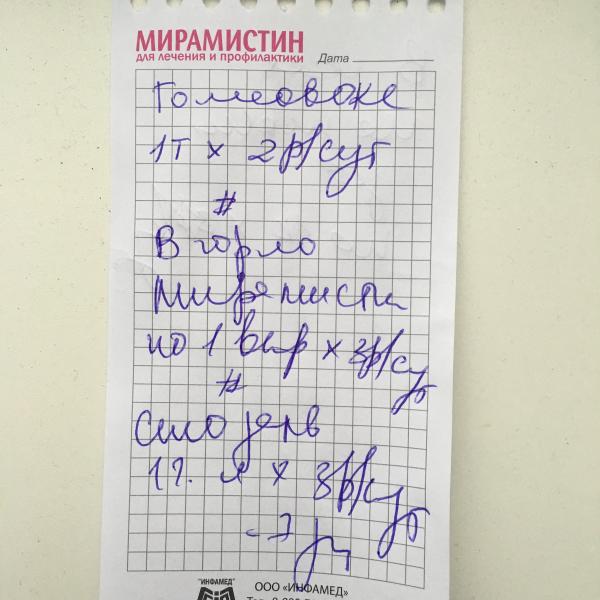 МИРАМИСТИН
для лечения и профилактики Дата
Гомеовокс
1т x 2р/сут
#
В горло
Мирамистин
по 1 впр x 3р/сут
#
1 ч. л x 3р/сут
"ИНФАМЕД"
ООО «ИНФАМЕД»